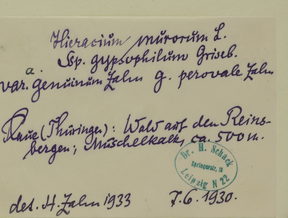 Hieracium murorum L.
a. Ssp. gypsophilum Griseb.
var. genuinum Zahn g. perovale Zahn
Plaue (Thüringen): Wald auf den Reins-
bergen, Muschelkalk, ca. 500 m.
Dr. H. Schack
Leipzig N 22
det. H. Zahn 1933 7.6.1930.